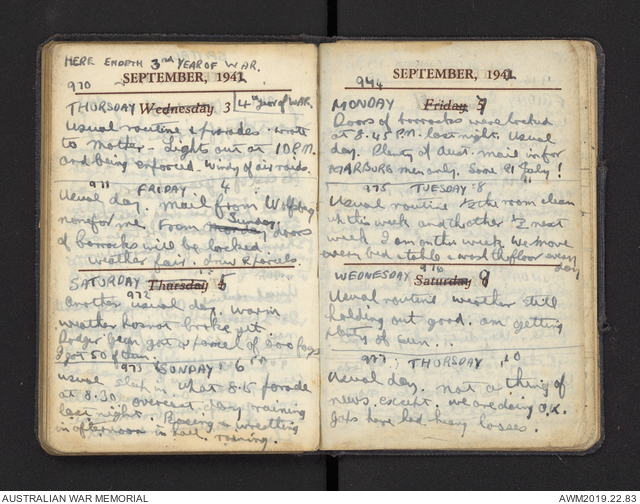 HERE ENDETH 3rd YEAR OF WAR.
970
SEPTEMBER, 1942
THURSDAY Wednesday 3 4th year of WAR.
Usual routine & parades. wrote
to Mother - Lights out at 10 P.M.
and being enforced. Windy of air raids.
971 FRIDAY 4
Usual day. Mail from Wolfsberg
none for me. From Monday Sunday doors
of barracks will be locked.
Weather fair. drew parcels.
SATURDAY Thursday 5
972
Another usual day. Warm
weather has not broke yet.
Rodger Year got a parcel of 200 fags
I got 50 of him.
973 SUNDAY 6th
Usual sleep in. What 8.15 parade
at 8.30. overcast day raining
last night. Boxing & wrestling
in afternoon in hall. raining.
974
SEPTEMBER, 1942
MONDAY Friday 7
Doors of barracks were locked
at 8.45 P.M. last night. Usual
day. Plenty of Aust. mail in for
MARBURG men only. Some 21 July!
975 TUESDAY 8
Usual routine 1/2 the room clean
up this week and the other 1/2 next
week I am on this week. We move
every bed & table & wash the floor every
day
976
WEDNESDAY Saturday 9
Usual routine weather still
holding out good. am getting
plenty of sun...
977 THURSDAY 10
Usual day. not a thing of
news except we are doing O.K.
Japs have had heavy losses.
AUSTRALIAN WAR MEMORIAL
AWM2019.22.83